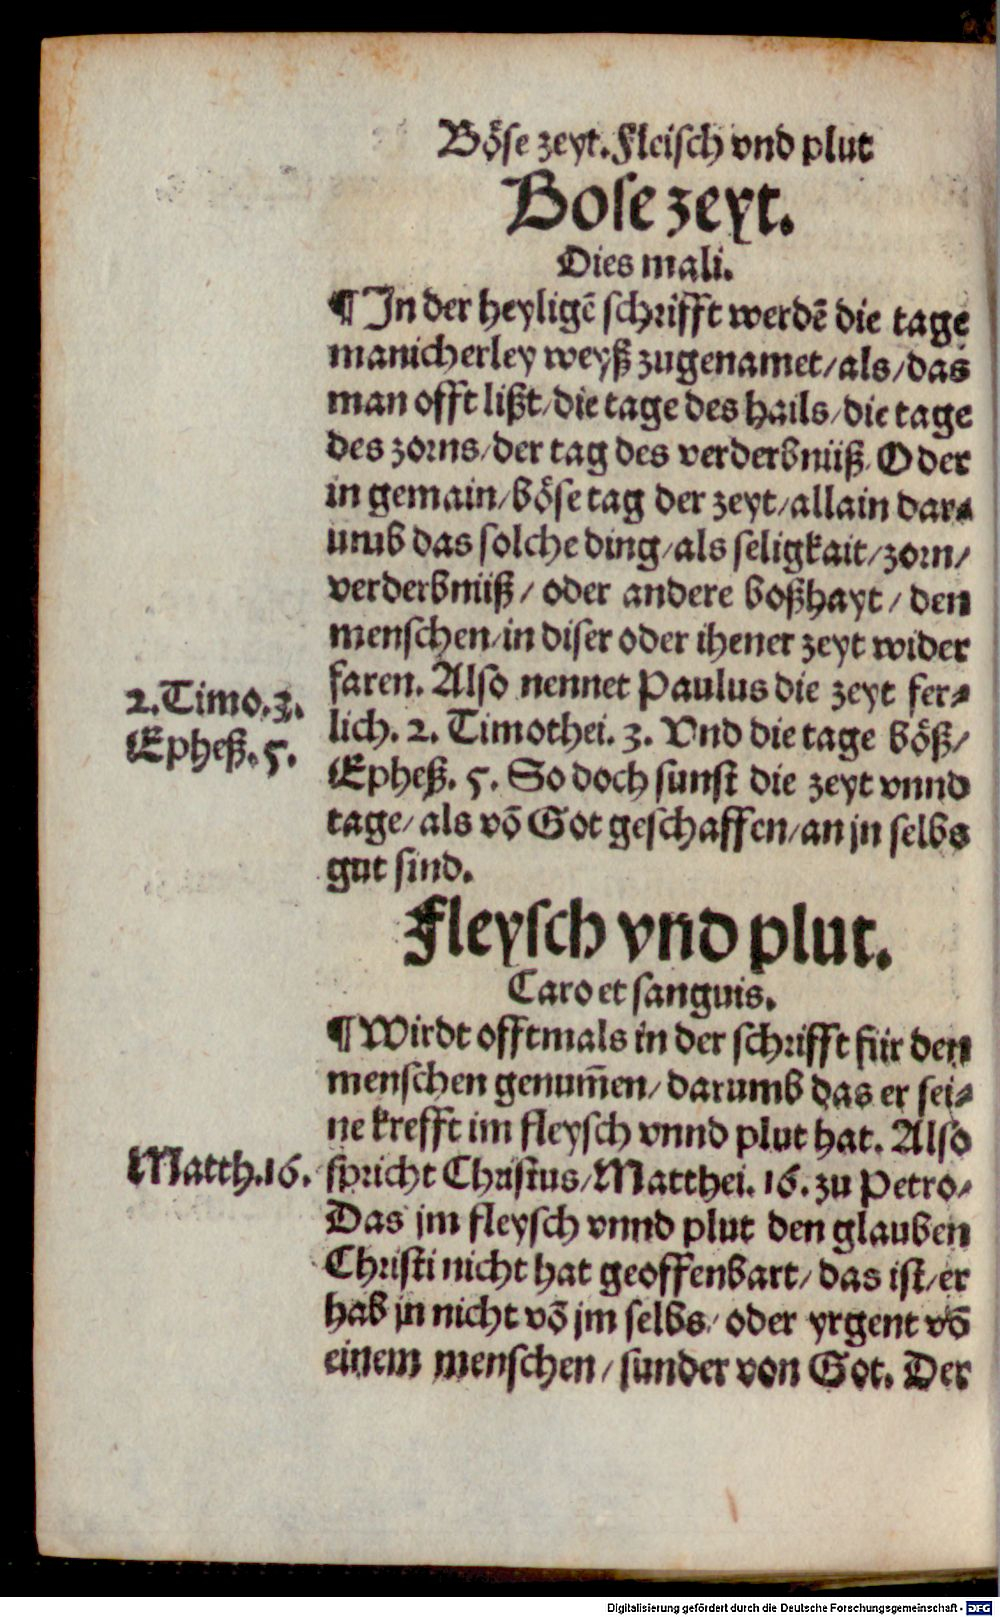 Böse zeyt. Fleisch vnd plut
Bose zeyt.
Dies mali.
¶ In der heyligē schrifft werdē die tage
manicherley weyß zugenamet/als/das
man offt lißt/die tage des hails/die tage
des zorns/der tag des verderbnüß. Oder
in gemain/böse tag der zeyt/allain dar⸗
umb das solche ding/als seligkait/zorn/
verderbnüß/ oder andere boßhayt/ den
menschen/in diser oder ihener zeyt wider
faren. Also nennet Paulus die zeyt fer⸗
2.Timo.3.
lich. 2. Timothei. 3. Vnd die tage böß/
Epheß.5.
Epheß. 5. So doch sunst die zeyt vnnd
tage/ als vō Got geschaffen/an jn selbs
gut sind.
Fleysch vnd plut.
Caro et sanguis.
¶ Wirdt offtmals in der schrifft für den
menschen genum̄en/ darumb das er sei⸗
ne krefft im fleysch vnnd plut hat. Also
Matth.16.
spricht Christus/Matthei. 16. zu Petro/
Das jm fleysch vnnd plut den glauben
Christi nicht hat geoffenbart/ das ist/er
hab jn nicht vō jm selbs/ oder yrgent vō
einem menschen/ sunder von Got. Der
Digitalisierung gefördert durch die Deutsche Forschungsgemeinschaft - DFG